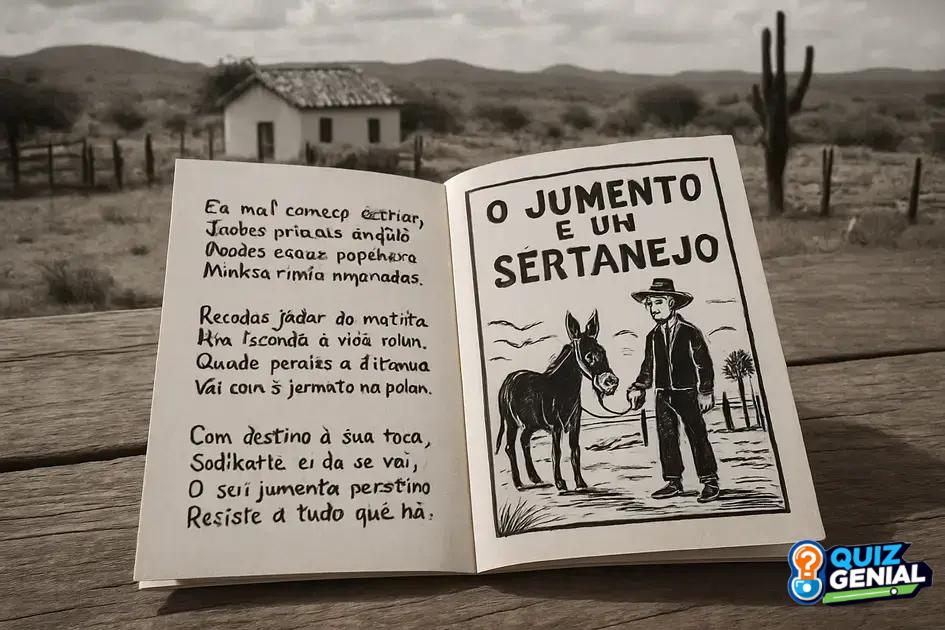 Ea mal começo éctriar,
Jaobes priaals ándulô
Noodes eαuaz popéhura
Minksa rimía nmanadas.
Recodas jádar do matita
Hra Isconda à vidà rolun.
Quade peraíes a díitanua
Vai com s jermato na polan.
Com destino à sua toca,
Sodikattë ei da se vai,
O seií jumenta perstino
Resiste a tudo quê hà.
O JUMENTO
E UH
SÉRTANEJO
QUIZ
GENIAL